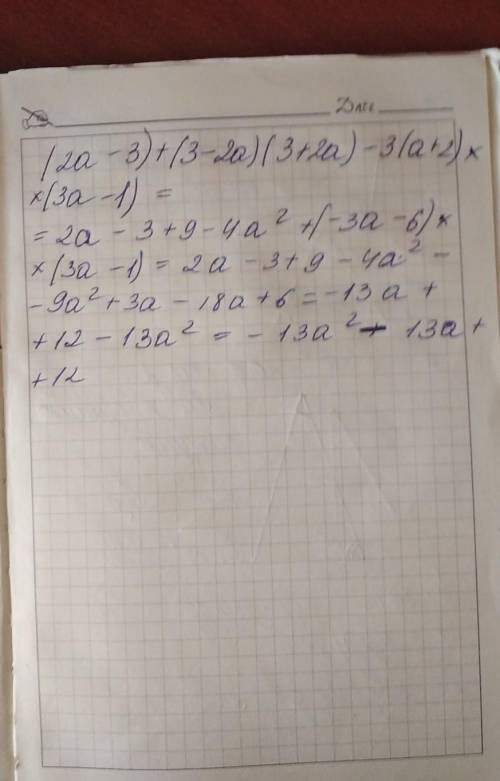 Дата
(2a - 3) + (3 - 2a)(3 + 2a) - 3(a + 2) ×
× (3a - 1) =
= 2a - 3 + 9 - 4a² + (-3a - 6) ×
× (3a - 1) = 2a - 3 + 9 - 4a² -
- 9a² + 3a - 18a + 6 = -13a +
+ 12 - 13a² = - 13a² - 13a +
+ 12